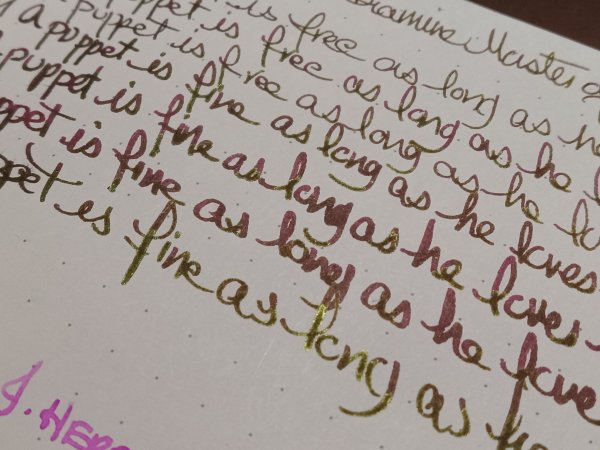 Master
is free as long as he
puppet is free as long as he
a puppet is free as long as he
puppet is fine as long as he loves
puppet is fine as long as he loves
ppet is fine as long as he love
pet is fine as long as
J. HER